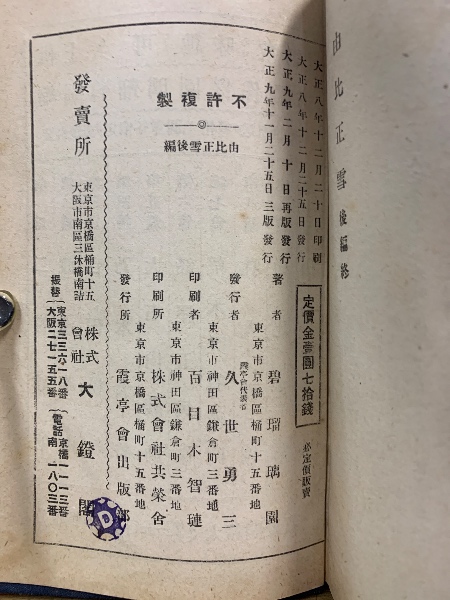 由比正雪後編終
大正八年十二月二十日印刷
大正八年十二月二十五日發行
大正九年二月十日再版發行
大正九年十一月二十五日三版發行
不許複製
由比正雪後編
定價金壹圓七拾錢
必定價販賣
著者 碧瑠璃園
東京市京橋區桶町十五番地
霞亭會代表者
發行者 久世勇三
東京市神田區鎌倉町三番地
印刷者 百目木智璉
東京市神田區鎌倉町三番地
印刷所 株式會社共榮舍
東京市京橋區桶町十五番地
發行所 霞亭會出版部
發賣所
東京市京橋區桶町十五
大阪市南區三休橋南詰
株式會社 大鐙閣
振替 東京三三六一八番 大阪二七一五五番
電話 京橋一一一三番 南一八〇三番
D